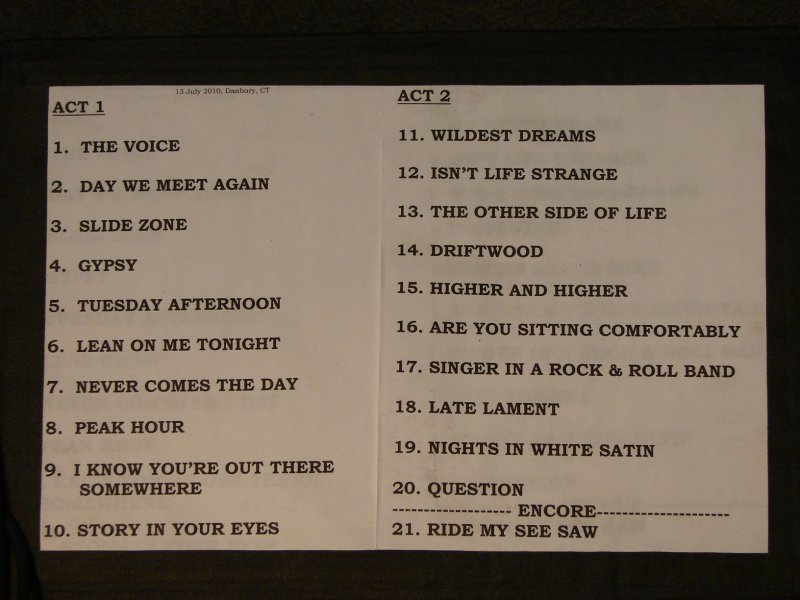 13 July 2010, Danbury, CT
ACT 1
1. THE VOICE
2. DAY WE MEET AGAIN
3. SLIDE ZONE
4. GYPSY
5. TUESDAY AFTERNOON
6. LEAN ON ME TONIGHT
7. NEVER COMES THE DAY
8. PEAK HOUR
9. I KNOW YOU'RE OUT THERE
SOMEWHERE
10. STORY IN YOUR EYES
ACT 2
11. WILDEST DREAMS
12. ISN'T LIFE STRANGE
13. THE OTHER SIDE OF LIFE
14. DRIFTWOOD
15. HIGHER AND HIGHER
16. ARE YOU SITTING COMFORTABLY
17. SINGER IN A ROCK & ROLL BAND
18. LATE LAMENT
19. NIGHTS IN WHITE SATIN
20. QUESTION
------------------- ENCORE---------------------
21. RIDE MY SEE SAW